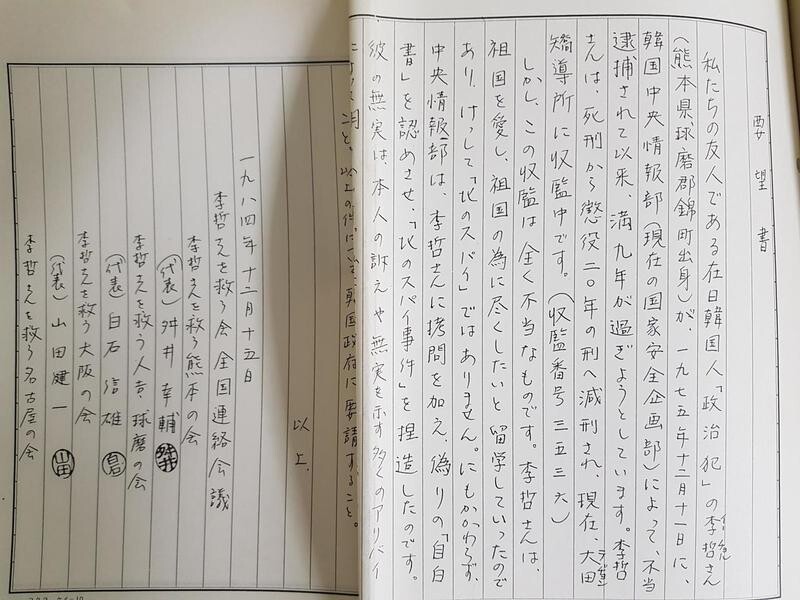 要望書
私たちの友人である在日韓国人「政治犯」の李哲さん
(熊本県球磨郡錦町出身)が、一九七五年十二月十一日に、
韓国中央情報部(現在の国家安全企画部)によって、不当
逮捕されて以来、満九年が過ぎようとしています。李哲
さんは、死刑から懲役二〇年の刑へ減刑され、現在、大田
矯導所に収監中です。(収監番号三五三六)
しかし、この収監は全く不当なものです。李哲さんは、
祖国を愛し、祖国の為に尽くしたいと留学していったので
あり、けっして「北のスパイ」ではありません。にもかかわらず、
中央情報部は、李哲さんに拷問を加え、偽りの「自白
書」を認めさせ、「北のスパイ事件」を捏造したのです。
彼の無実は本人の訴えや無実を示す多くのアリバイ
と。以上の件について、韓国政府に要請すること。
以上.
一九八四年十二月十五日
李哲さんを救う会全国連絡会議
李哲さんを救う熊本の会
(代表)舛井幸輔 舛井
李哲さんを救う人吉・球磨の会
(代表)白石信雄
李哲さんを救う大阪の会
(代表)山田健一 山田
李哲さんを救う名古屋の会